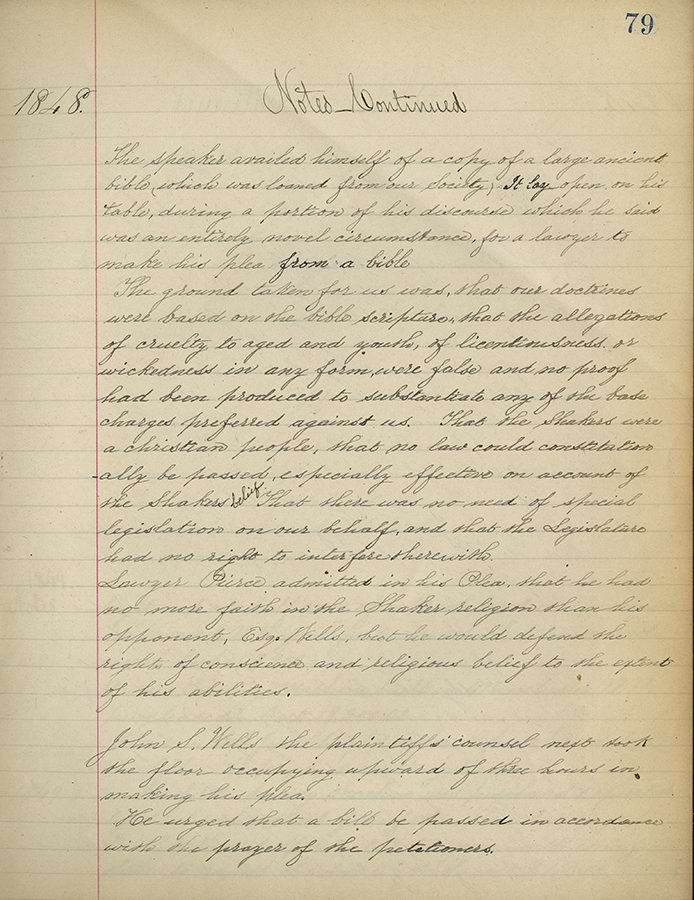 79
1848. Notes - Continued
The speaker availed himself of a copy of a large ancient
bible, (which was loaned from our Society,) It lay open on his
table, during a portion of his discourse which he said
was an entirely novel circumstance, for a lawyer to
make his plea from a bible
The ground taken for us was, that our doctrines
were based on the bible scripture, that the allegations
of cruelty to aged and youth, of licentiousness or
wickedness in any form, were false and no proof
had been produced to substantiate any of the base
charges preferred against us. That the Shakers were
a christian people, that no law could constitution
-ally be passed, especially effective on account of
the Shakers belief That there was no need of special
legislation on our behalf, and that the Legislature
had no right to interfere therewith.
Lawyer Pierce admitted in his Plea, that he had
no more faith in the Shaker religion than his
opponent, Esq. Wells, but he would defend the
rights of conscience and religious belief to the extent
of his abilities.
John S. Wells the plaintiffs' counsel next took
the floor occupying upward of three hours in
making his plea.
He urged that a bill be passed in accordance
with the prayer of the petetioners.